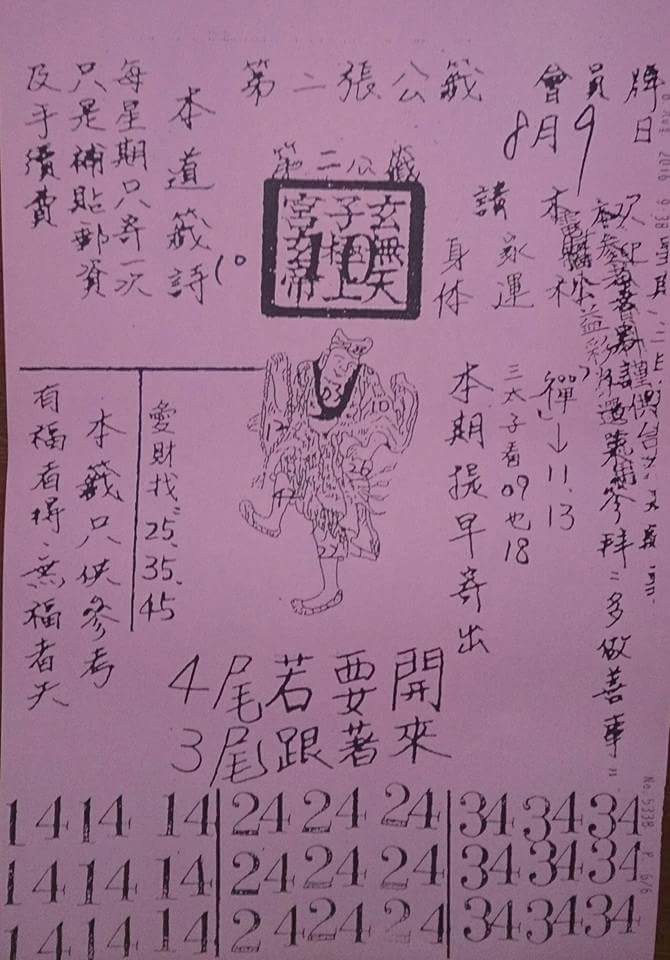 第二張公籤
會員牌
8月9日
第二公籤
玄無天
子極上
宮玄帝
10
本道籤詩
10
每星期只寄一次
只是補貼郵資
及手續費
身体
家運
禪→11.13
三太子看09也18
本期提早寄出
多做善事
愛財找25.35.45
本籤只供參考
有福者得、無福者失
12
10
26
42
22
4尾若要開
3尾跟著來
14 14 14 24 24 24 34 34 34
14 14 14 24 24 24 34 34 34
14 14 14 24 24 24 34 34 34
No. 5338 P. 6/6